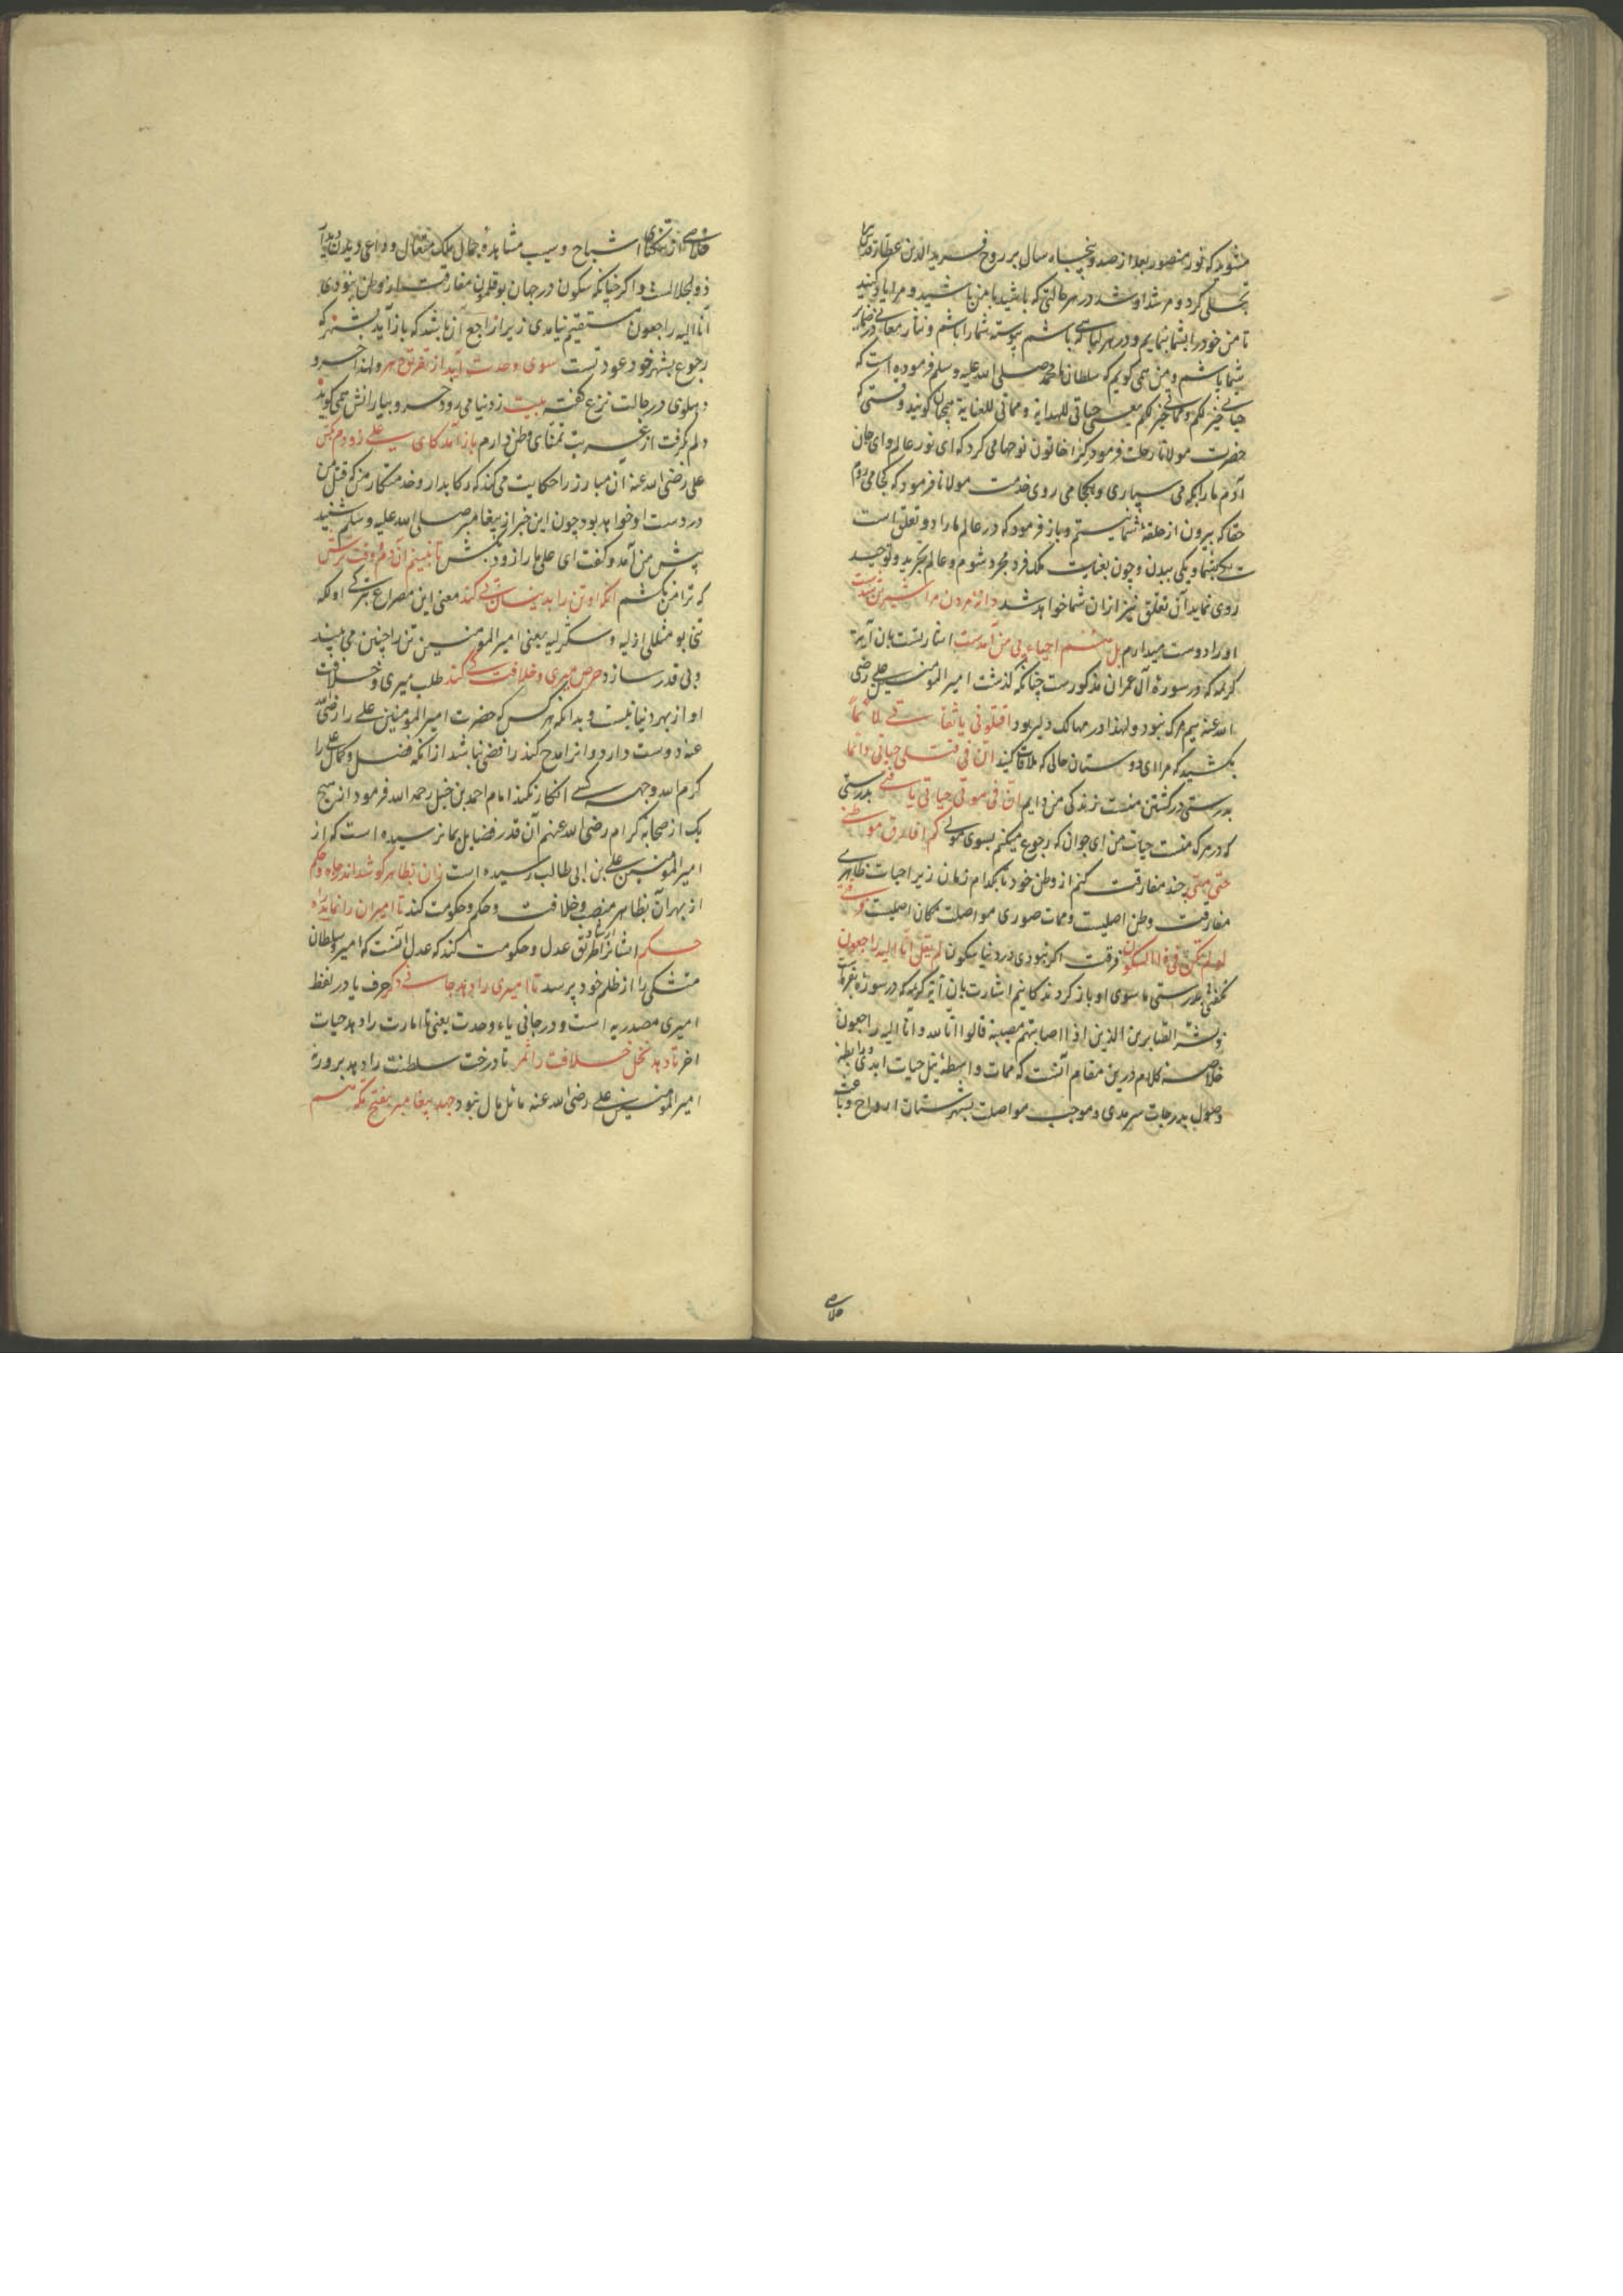 مشوید که نور منصور بعد از صد و پنجاه سال بر روح فرید الدین عطار قدس سره
تجلی کرد و مرشد او شد در هر حالتی که باشید با من باشید و مرا یاد کنید
تا من خود را بشما بنمایم و در هر لباسی که باشم پیوسته شما را باشم و نثار معانی در ضمایر
شما باشم و من همی گویم که سلطان ما محمد صلی الله علیه و سلم فرموده است که
حیاتی خیر لکم و مماتی خیر لکم یعنی حیاتی للهدایة و مماتی للعنایة همچنان گویند وقتی که
حضرت مولانا رحلت فرمود کرا خاتون نوحها می کرد که ای نور عالم و ای جان
آدم ما را بکه می سپاری و کجا می روی خدمت مولانا فرمود که کجا می روم
حقا که بیرون از حلقهٔ شما نیستم و باز فرمود که در عالم ما را دو تعلق است
یکی بشما و یکی ببدن و چون بعنایت ملک فرد مجرد شوم و عالم تجرید و توحید
روی نماید آن تعلق نیز از آن شما خواهد شد دانه مردن مرا شیرین شدست
او را دوست میدارم بل هم احیاء پی من آمدست اشارتست بان آیهٔ
کریمه که در سورهٔ آل عمران مذکورست چنانکه گذشت امیر المؤمنین علی رضی
الله عنه بیم مرک نبود و لهذا در مهالک دلیر بود اقتلونی یا ثقاتی لائما
بکشید که مرا ای دوستان حالی که ملامت کنید ان فی قتلی حیاتی دائما
بدرستی در کشتن منست زندگی من دایم ان فی موتی حیاتی یا فتی بدرستی
که در مرک منست حیات من ای جوان که رجوع میکنم بسوی مولی کم افارق موطنی
حتی متی چند مفارقت کنم از وطن خود تا بکدام زمان زیرا حیات ظاهری
مفارقت وطن اصلیست و ممات صوری مواصلت مکان اصلیست فرقتی
لو لم تکن فی ذا السکون فرقت اکر نبودی در دنیا سکون لم یقل انا الیه راجعون
نکفتی بدرستی ما سوی او باز کردندکانیم اشارت بان آیه کریمه که در سورهٔ بقره است
و بشر الصابرین الذین اذا اصابتهم مصیبة قالوا انا لله و انا الیه راجعون
خلاصهٔ کلام درین مقام آنست که ممات واسطهٔ نیل حیات ابدی و رابطهٔ
وصول بدرجات سرمدی و موجب مواصلت بشهرستان ارواح و باعث
خلاصی
خلاصی از تنکنای اشباح و سبب مشاهدهٔ جمال ملک متعال و داعی دیدن دیدار
ذو الجلالست و اکر چنانکه سکون در جهان بوقلمون مفارقت از وطن نبودی
انا الیه راجعون مستقیم نیامدی زیرا راجع آن باشد که باز آید بشهر که
رجوع بشهر خود عودتست سوی وحدت آید از تفریق دهر و لهذا خسرو
دهلوی در حالت نزع گفته بیت ز دنیا می رود خسرو بیارانش همی کوید
دلم بگرفت از غربت تمنای وطن دارم باز آمد کای علی زودم بکش
علی رضی الله عنه آن مبارز را حکایت می کند که رکابدار و خدمتکار من که قتل من
در دست او خواهد بود چون این خبر از پیغامبر صلی الله علیه و سلم شنید
پیش من آمد و گفت ای علی ما را زود بکش تا نبینم آن دم و وقت ترش
که ترا من بکشم آنکه او تن را بدینسان پی کند معنی این مصراع بترکی اولکه
تنی بو مثللی ازلیه و سکرلیه یعنی امیر المؤمنین تن را چنین می بیند
و بی قدر سازد حرص میری و خلافت کی کند طلب میری و خلافت
او از بهر دنیا نیست و بدانکه هر کس که حضرت امیر المؤمنین علی را رضی الله
عنه دوست دارد و او را مدح کند رافضی نباشد از آنکه فضل و کمال علی را
کرم الله وجهه کسی انکار نکند امام احمد بن حنبل رحمه الله فرمود از هیچ
یک از صحابهٔ کرام رضی الله عنهم آن قدر فضایل بما نرسیده است که از
امیر المؤمنین علی بن ابی طالب رسیده است زان بظاهر کوشد اندر جاه و حکم
از بهر آن بظاهر منصب و خلافت و حکم و حکومت کند تا امیران را نماید راه
حکم ایشانرا ارشاد و طریق عدل و حکومت کند که عدل آنست که امیر و سلطان
متشکی را از ظلم خود پرسد تا امیری را دهد جانی دکر حرف یا در لفظ
امیری مصدریه است و در جانی یاء وحدت یعنی تا امارت را دهد حیات
اخر تا دهد نخل خلافت را ثمر تا درخت سلطنت را دهد پرورزه
امیر المؤمنین علی رضی الله عنه مائل مال نبود جهد پیغامبر بفتح مکه هم